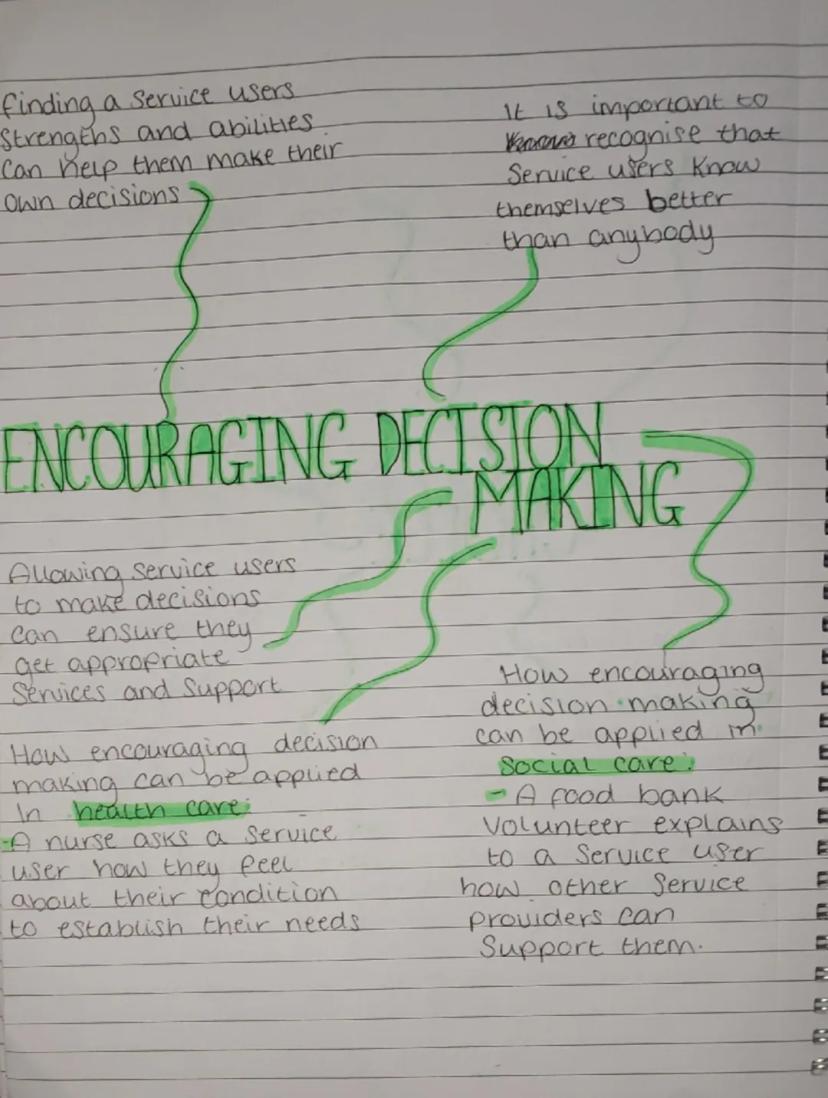 finding a service users
strengths and abilities
can help them make their
own decisions
It is important to
recognise that
service users know
themselves better
than anybody
ENCOURAGING DECISION
MAKING
Allowing service users
to make decisions
can ensure they
get appropriate
services and support
How encouraging decision
making can be applied
in health care:
-A nurse asks a service
user how they feel
about their condition
to establish their needs
How encouraging
decision making
can be applied in
social care:
- A food bank
volunteer explains
to a service user
how other service
providers can
support them.